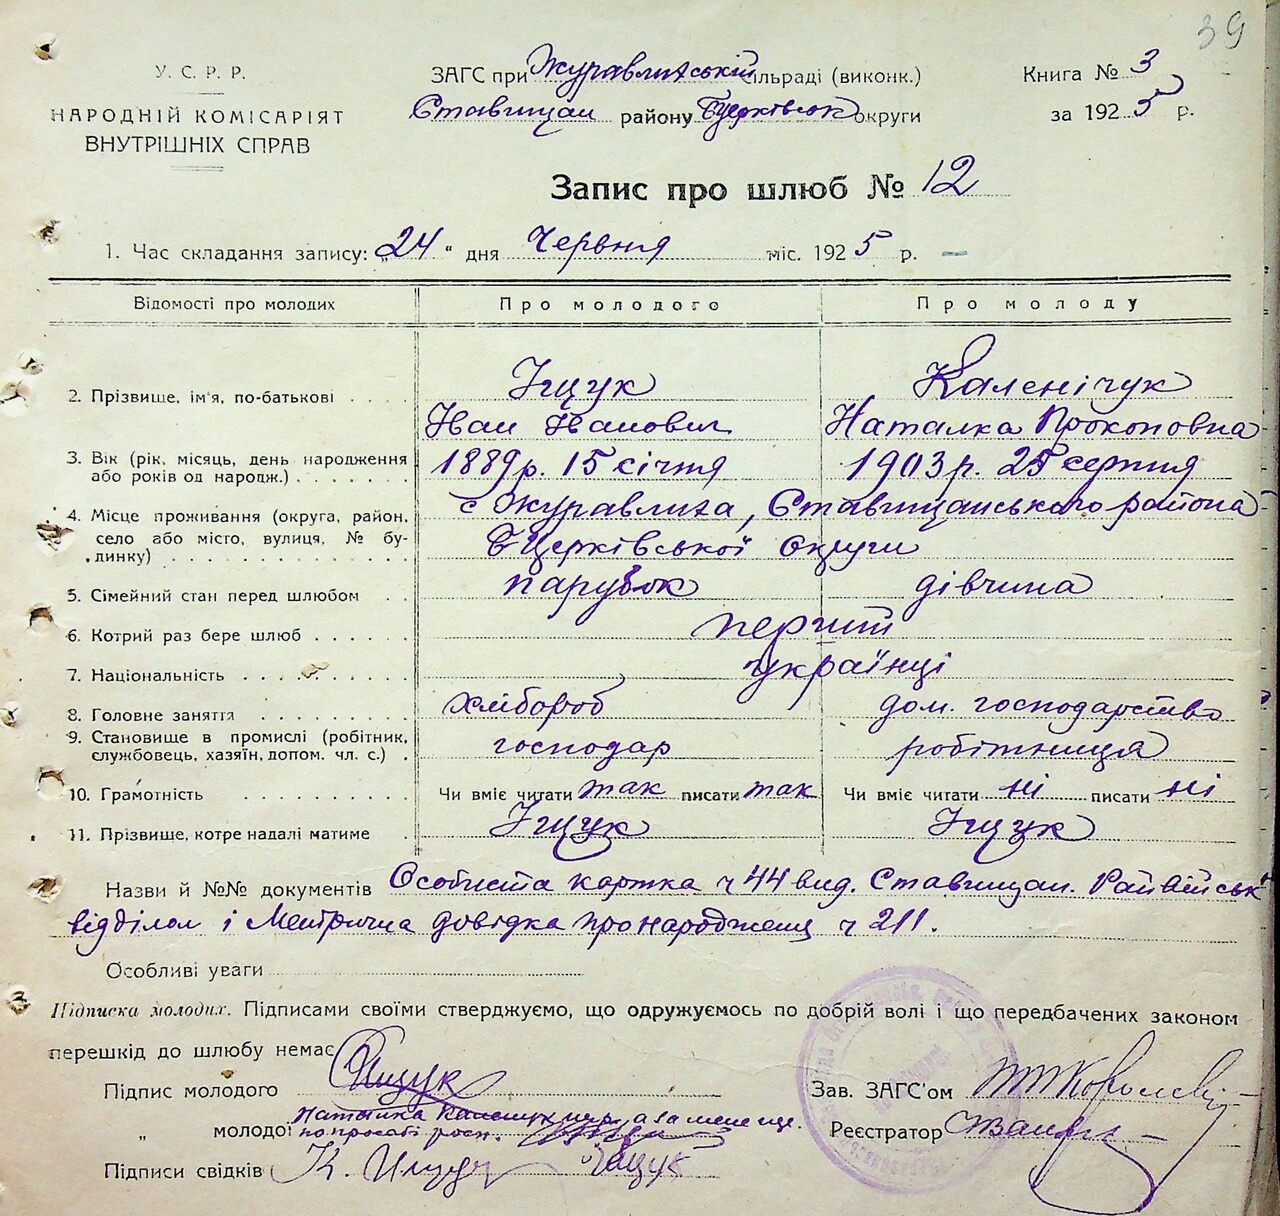 39
У. С. Р. Р.
НАРОДНІЙ КОМІСАРІЯТ
ВНУТРІШНІХ СПРАВ
ЗАГС при Журавлиській сільраді (виконк.)
Ставищан району Бцерківськ округи
Книга № 3
за 1925 р.
Запис про шлюб № 12
1. Час складання запису: „24“ дня Червня міс. 1925 р. —
Відомості про молодих Про молодого Про молоду
2. Прізвище, ім'я, по-батькові Іщук Каленічук
Иван Иванович Наталка Прокоповна
3. Вік (рік, місяць, день народження або років од народж.) 1889р. 15 січня 1903 р. 25 серпня
4. Місце проживання (округа, район, село або місто, вулиця, № будинку) с Журавлиха, Ставищанського района
БЦерківської Округи
5. Сімейний стан перед шлюбом парубок дівчина
6. Котрий раз бере шлюб перший
7. Національність українці
8. Головне заняття хлібороб дом. господарство
9. Становище в промислі (робітник, службовець, хазяїн, допом. чл. с.) господар робітниця
10. Грамотність Чи вміє читати так писати так Чи вміє читати ні писати ні
11. Прізвище, котре надалі матиме Іщук Іщук
Назви й №№ документів Особиста картка ч 44 вид. Ставищан. Райвійськ
відділом і Метрична довідка про народження ч 211.
Особливі уваги
Підписка молодих. Підписами своїми стверджуємо, що одружуємось по добрій волі і що передбачених законом
перешкід до шлюбу немає
Підпис молодого Іщук
„ молодої Наталка
Підписи свідків К. Іщук
Зав. ЗАГС'ом
Реєстратор